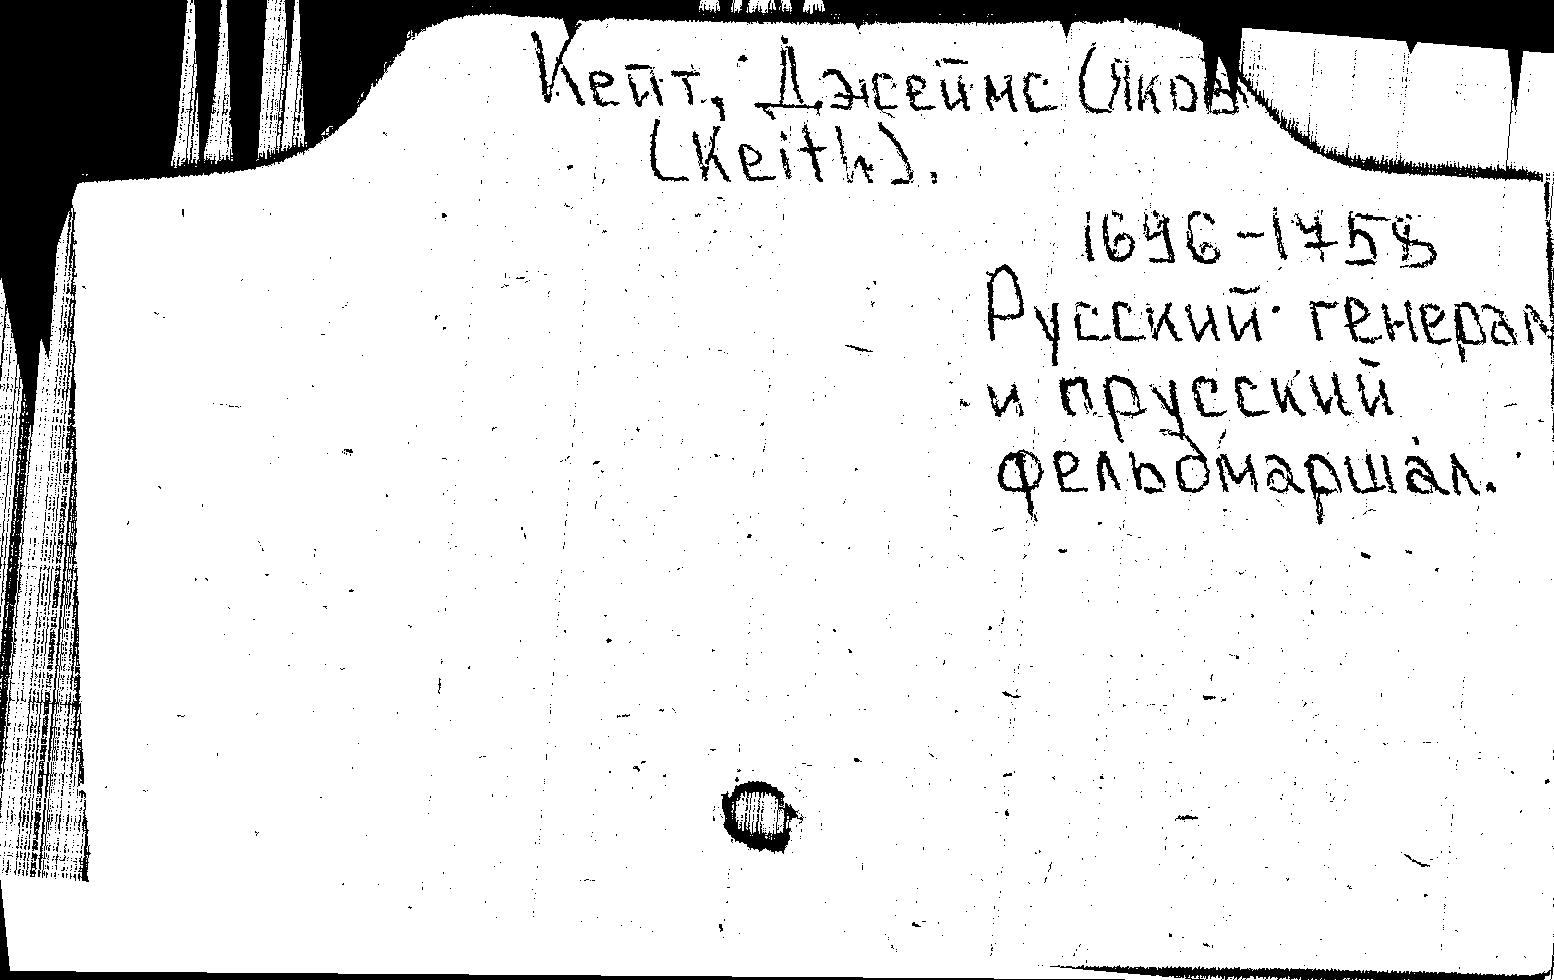 Кейт, Джеймс (Яков
(Keith).
1696-1758
Русский генерал
и прусский
фельдмаршал.